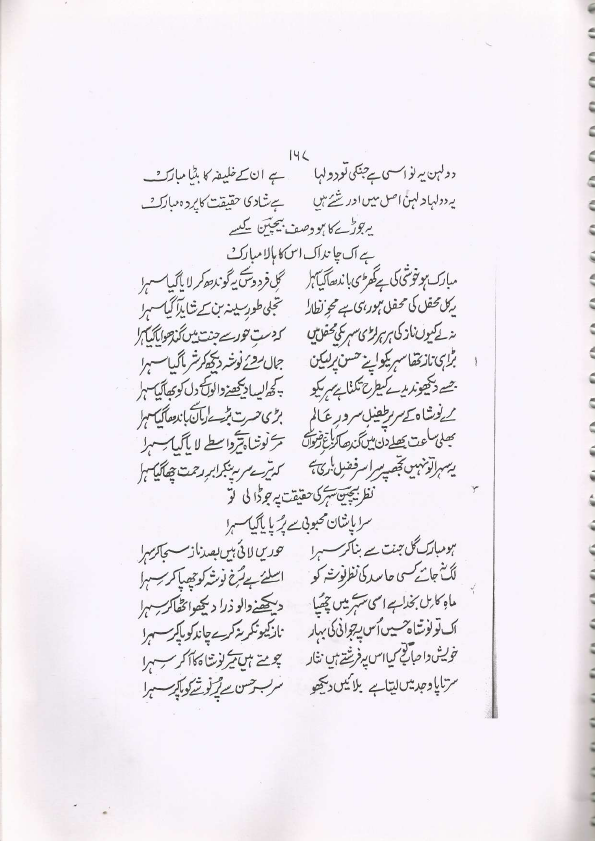 ۱۶۷
دولہن یہ نواسی ہے جنکی تو دولہا ہے ان کے خلیفہ کا بیٹا مبارک
یہ دولہا دلہن اصل میں اور شئے ہیں ہے شادی حقیقت کا پردہ مبارک
یہ جوڑے کا ہو وصف بیچین کیسے
ہے اک چاند اک اس کا ہالا مبارک
مبارک ہو خوشی کی ہے گھڑی باندھا گیا سہرا گلِ فردوس سے یہ گوندھ کر لایا گیا سہرا
یہ کل محفل کی محفل ہو رہی ہے محوِ نظارا تجلی طورِ سینہ بن کے شاید آ گیا سہرا
نہ لے کیوں ناز کی ہر ہر لڑی سہرے کی محفل میں کہ دستِ حور سے جنت میں گندھوایا گیا سہرا
۱
بڑا ہی ناز تھا سہریکو اپنے حسن پر لیکن جمالِ روئے نوشہ دیکھ کر شرما گیا سہرا
جسے دیکھو ندیدے کیطرح تکتا ہے سہریکو کچھ ایسا دیکھنے والوں کے دل کو بھا گیا سہرا
مرے نوشاہ کے سر پر طفیلِ سرورِ عالم بڑی حسرت بڑے ارماں سے باندھا گیا سہرا
بھلی ساعت بھلے دن میں گندھا کر باغِ رضواں سے مرے نوشاہ تیرے واسطے لایا گیا سہرا
یہ سہرا تو نہیں تجھپر سراسر فضلِ باری ہے کہ تیرے سر پہ بنکر ابرِ رحمت چھا گیا سہرا
۳
نظر بیچین سہرے کی حقیقت پہ جو ڈالی تو
سراپا شانِ محبوبی سے پُر پایا گیا سہرا
ہو مبارک گلِ جنت سے بنا کر سہرا حوریں لائی ہیں بصد ناز سجا کر سہرا
لگ نہ جائے کسی حاسد کی نظر نوشہ کو اسلئے ہے رُخِ نوشہ کو چھپا کر سہرا
ماہِ کامل بخدا ہے اسی سہرے میں چھپا دیکھنے والو ذرا دیکھو اٹھا کر سہرا
اک تو نوشاہ حسیں اُس پہ جوانی کی بہار ناز کیونکر نہ کرے چاند کو پا کر سہرا
خویش و احباب تو کیا اس پہ فرشتے ہیں نثار چومتے ہیں میرے نوشاہ کا آ کر سہرا
سرتاپا وجد میں لیتا ہے بلائیں دیکھو سر بسر حسن سے پُر نوشے کو پا کر سہرا